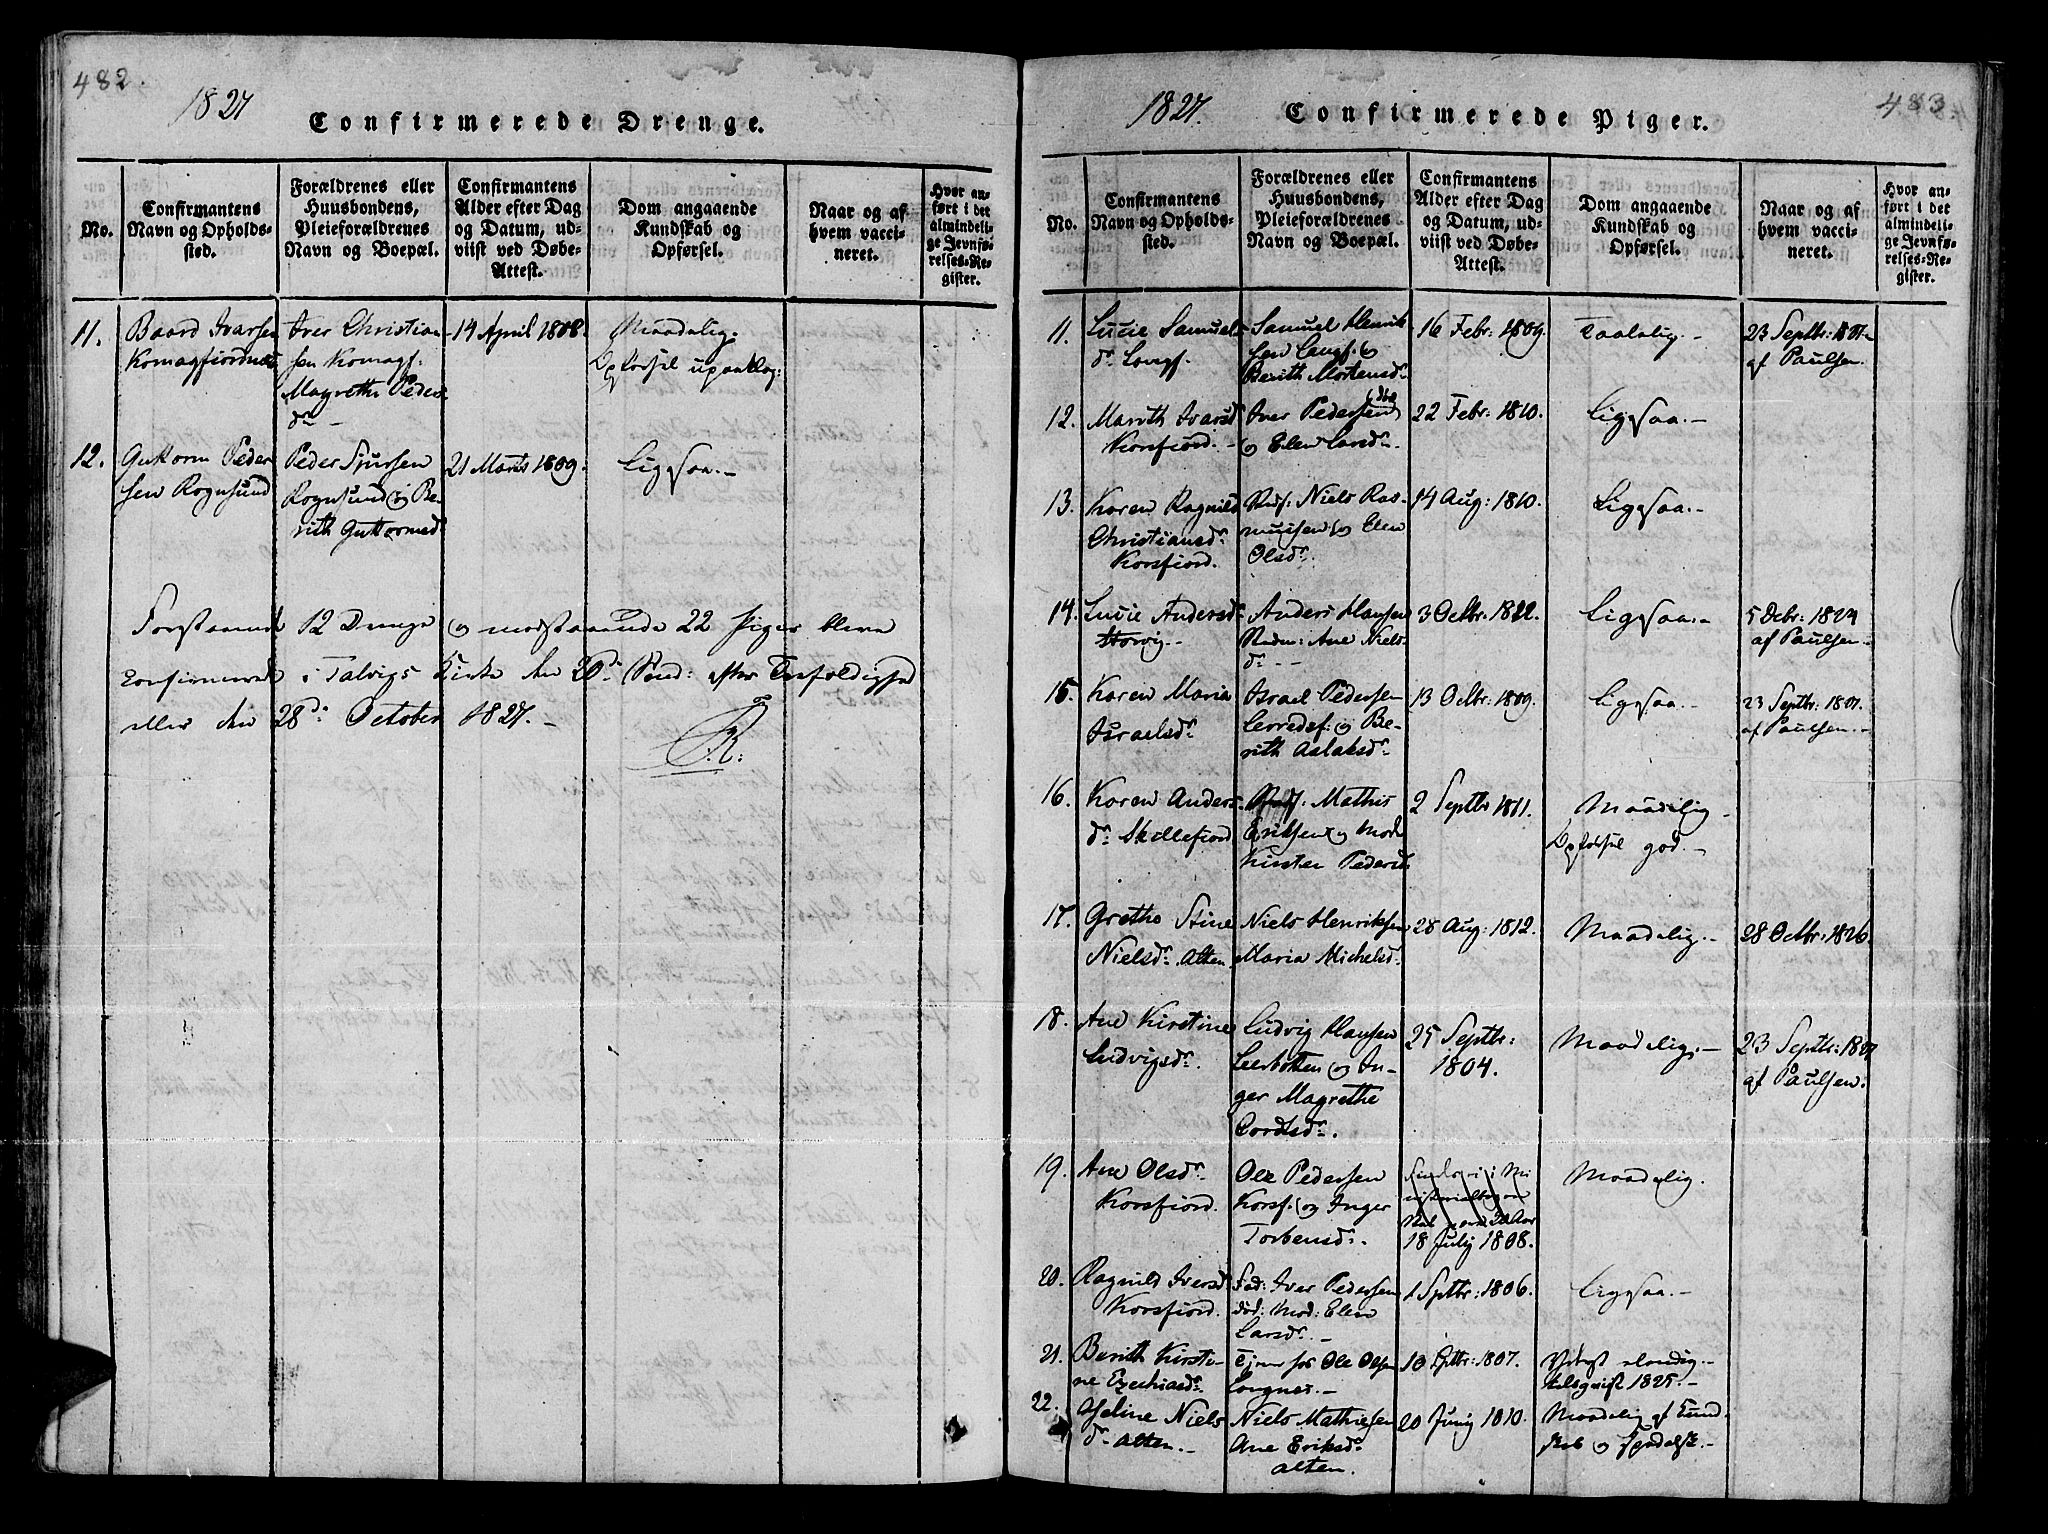 482.
1827
Confirmerede Drenge.
No.
Confirmantens
Navn og Opholds-
sted.
Forældrenes eller
Huusbondens,
Pleieforældrenes
Navn og Boepæl.
Confirmantens
Alder efter Dag
og Datum, ud-
viist ved Døbe-
Attest.
Dom angaaende
Kundskab og
Opførsel.
Naar og af
hvem vacci-
neret.
Hvor an-
ført i det
almindeli-
ge Jevnfø-
relses-Re-
gister.
11.
Baard Ivarsen
Komagfiordnæs
Iver Christian-
sen Komagf:
Magrethe Peders
dr. –
14 April 1808.
Maadelig.
Opførsel upaaklag:
12.
Guttorm Peder
sen Rognsund
Peder Sjursen
Rognsund og Be-
rith Guttormsd
21 Marts 1809.
Ligesaa. –
Forstaaende 12 Drenge og modstaaende 22 Piger bleve
confirmerede i Talvigs Kirke den 20de Sønd: efter Trefoldighed
eller den 28de October 1827. –
R:
483
1827.
Confirmerede Piger.
No.
Confirmantens
Navn og Opholds-
sted.
Forældrenes eller
Huusbondens,
Pleieforældrenes
Navn og Boepæl.
Confirmantens
Alder efter Dag
og Datum, ud-
viist ved Døbe-
Attest.
Dom angaaende
Kundskab og
Opførsel.
Naar og af
hvem vacci-
neret.
Hvor an-
ført i det
almindeli-
ge Jevnfø-
relses-Re-
gister.
11.
Lucie Samuels
dr. Langf.
Samuel Henrik
sen Langf. og
Berith Mortensdr.
16 Febr: 1809.
Taalelig. –
23 Septbr:
af Paulsen.
12.
Marith Ivarsd
Korsfiord. –
Iver Pedersen
og Elen Larsdr.
22 Febr: 1810.
Ligesaa. –
13.
Karen Ragnild
Christiansdr.
Korsfiord.
Niels Ras-
mussen og Elen
Olsdr.
14 Aug: 1810.
Ligesaa. –
14.
Lucie Andersdr.
Anders Hansen
Ane Niels
dr. – –
3 Octbr:
Ligesaa. –
5 Debr: 1824
af Paulsen. –
15.
Karen Maria
Israelsdr.
Israel Pedersen
Lerredsf: og Be-
rith Aslaksdr.
13 Octbr: 1809.
Ligesaa. –
23 Septbr:
af Paulsen. –
16.
Karen Anders
dr. Skillefiord
Mathis
Eriksen og Mod
Kirsten Pedersd.
2 Septbr 1811.
Maadelig
Opførsel god. –
17.
Grethe Stine
Nielsdr. Alten.
Niels Henriksen
Maria Michelsd.
28 Aug: 1812.
Maadelig. –
28 Octbr: 1826.
18.
Ane Kirstine
Ludvigsdr.
Ludvig Hansen
Leerbotten og In-
ger Magrethe
Cordtsdr.
25 Septbr:
1804.
Maadelig. –
23 Septbr:
af Paulsen.
19.
Ane Olsdr.
Korsfiord.
Ole Pedersen
Korsf. og Inger
Torbensdr.
18 July 1808.
Maadelig.
20.
Ragnild Iversd
Korsfiord.
Fad: Iver Pedersen
død: Mod: Elen
Larsdr. –
1 Septbr: 1806.
Ligesaa. –
21.
Berith Kirsti-
ne Ezechiasdr.
Tjener for Ole Olsen
Langnes. –
10 Septbr: 1807.
1825. –
22.
Aseline Niels
dr. Alten. –
Niels Mathiesen
Ane Eriksdr.
Alten.
20 Juny 1810.
Maadelig af Kund-
skab og